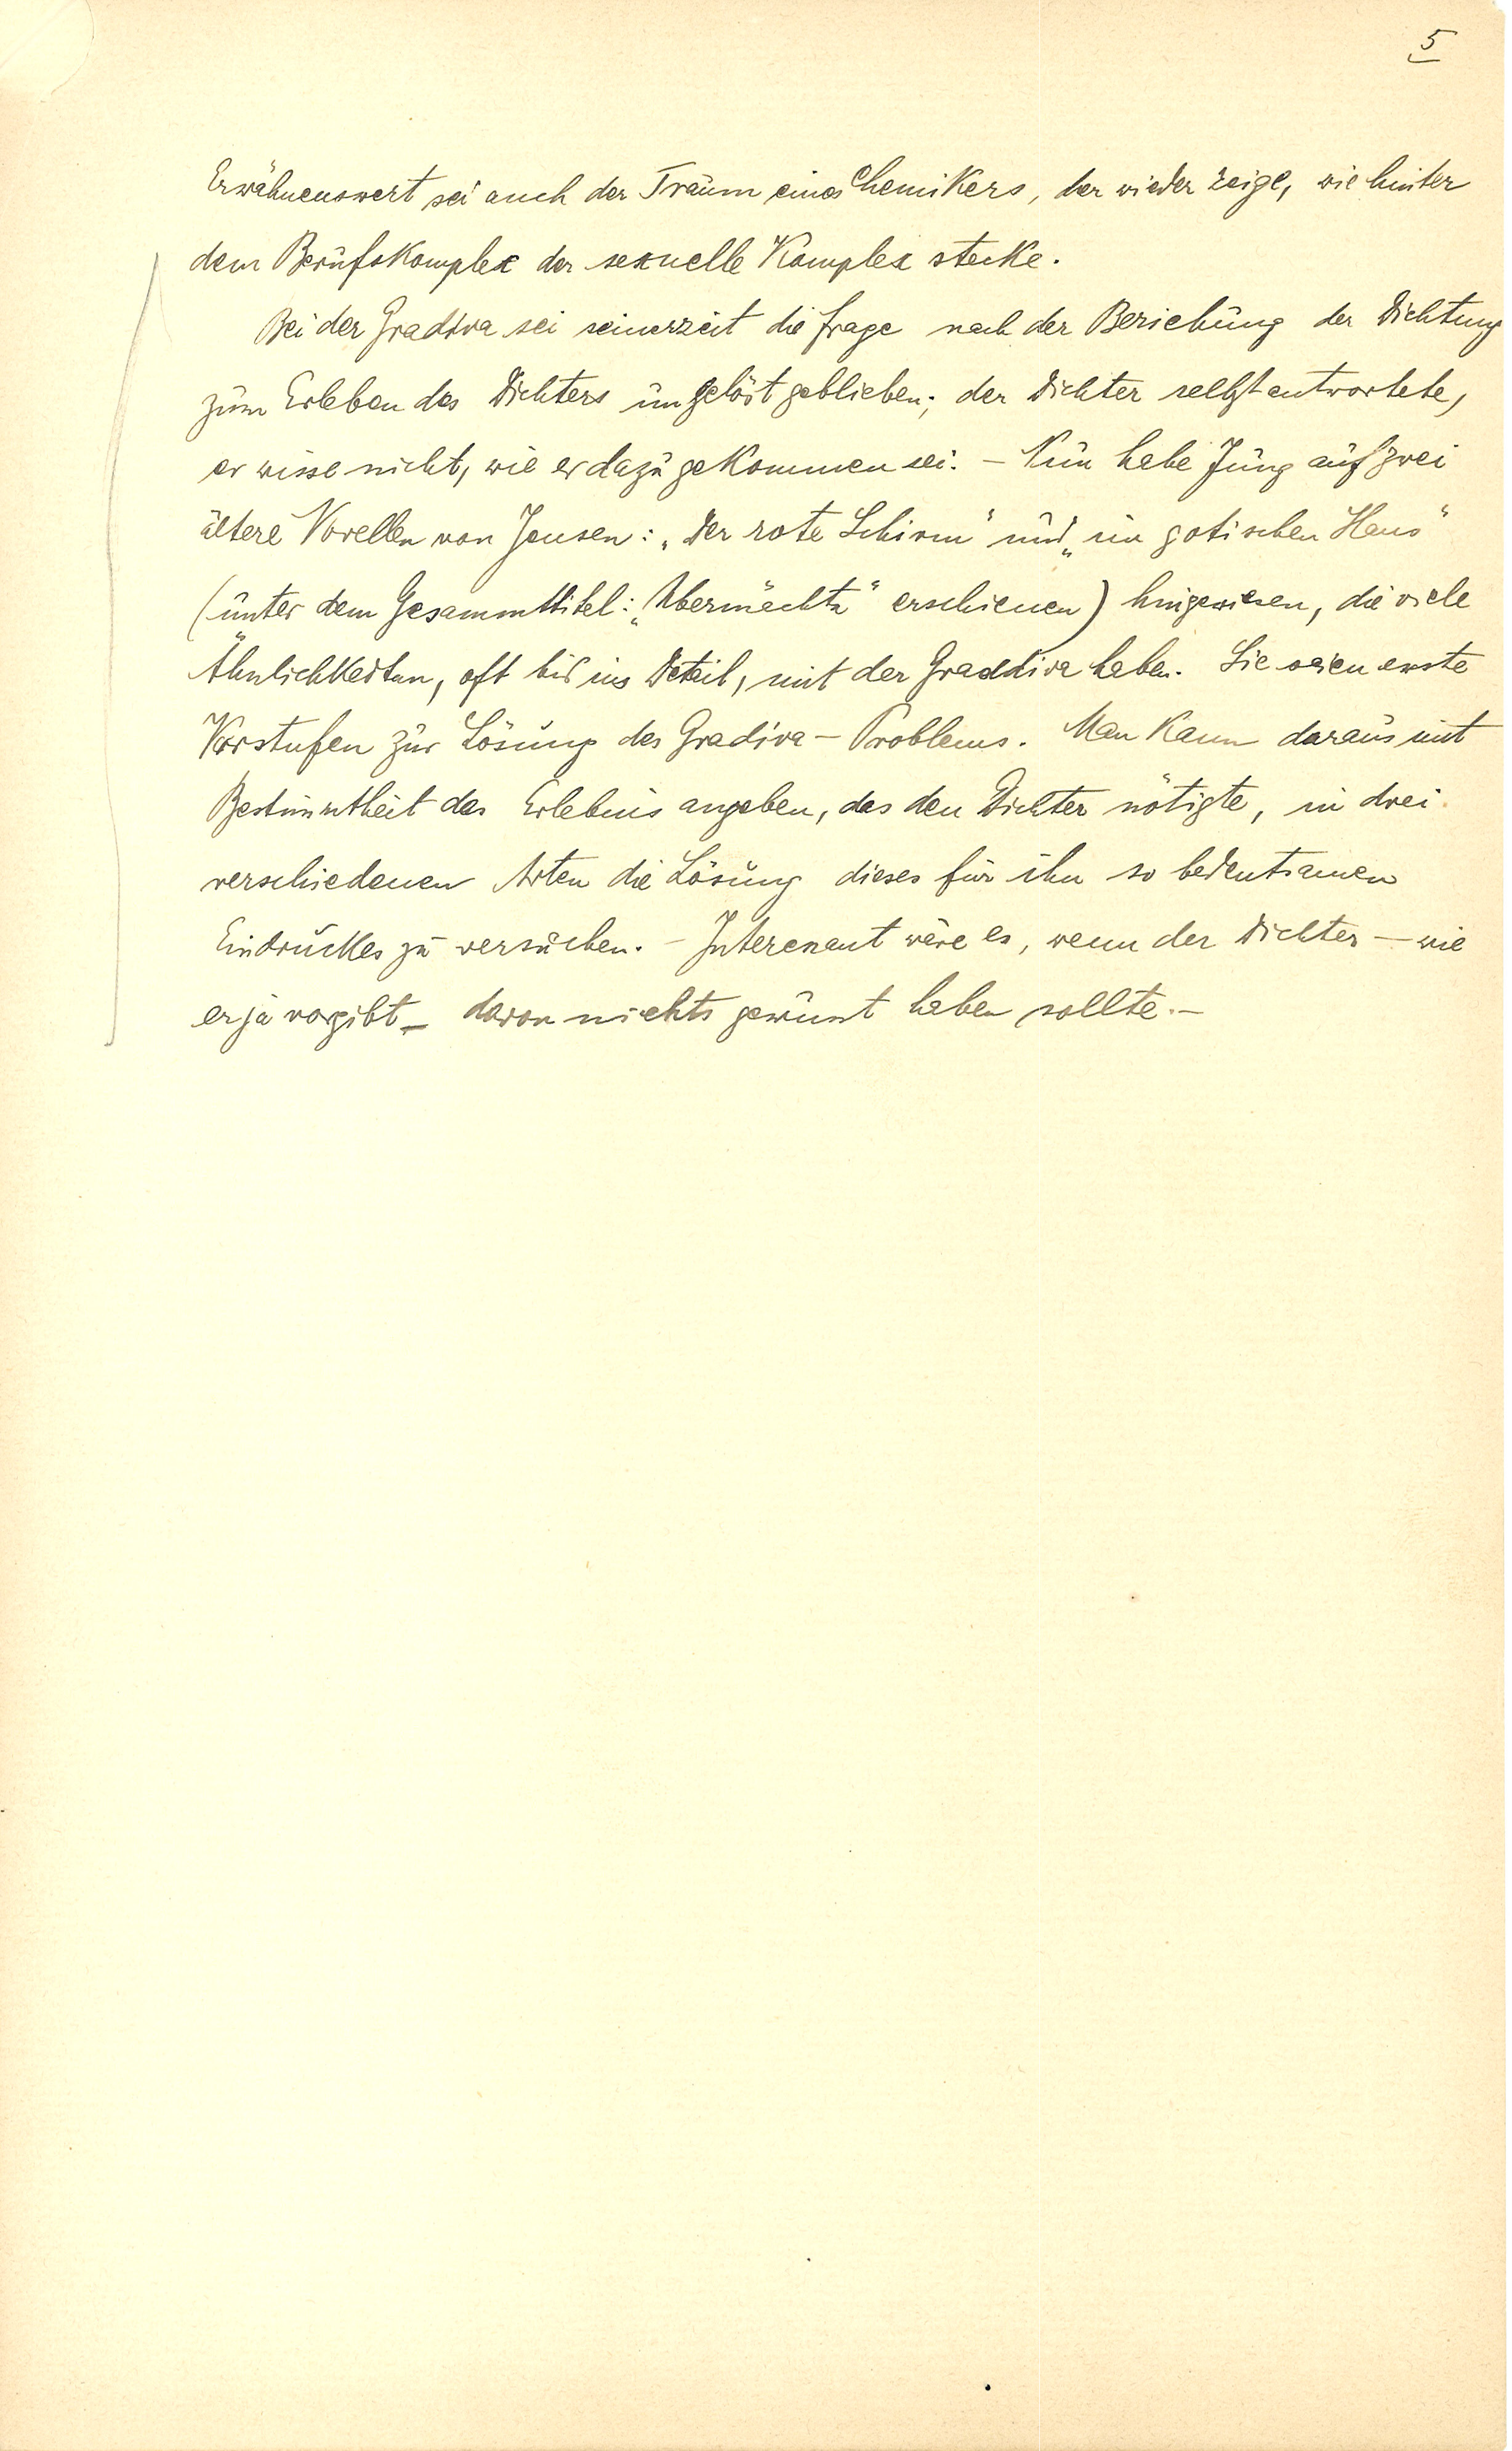 5
Erwähnenswert sei auch der Traum eines Chemikers, der wieder zeige, wie hinter
dem Berufskomplex der sexuelle Komplex stecke.
Bei der Gradiva sei seinerzeit die Frage nach der Beziehung der Dichtung
zum Erleben des Dichters ungelöst geblieben; der Dichter selbst antwortete,
er wisse nicht, wie er dazu gekommen sei. – Nun habe Jung auf zwei
ältere Novellen von Jensen: „Der rote Schirm“ und „im gotischen Haus“
(unter dem Gesammttitel: „Übermächte“ erschienen) hingewiesen, die viele
Ähnlichkeiten, oft bis ins Detail, mit der Graddiva haben. Sie seien erste
Vorstufen zur Lösung des Gradiva-Problems. Man kann daraus mit
Bestimmtheit das Erlebnis angeben, das den Dichter nötigte, in drei
verschiedenen Arten die Lösung dieses für ihn so bedeutsamen
Eindruckes zu versuchen. – Interessant wäre es, wenn der Dichter – wie
er ja vorgibt – davon nichts gewusst haben sollte. –